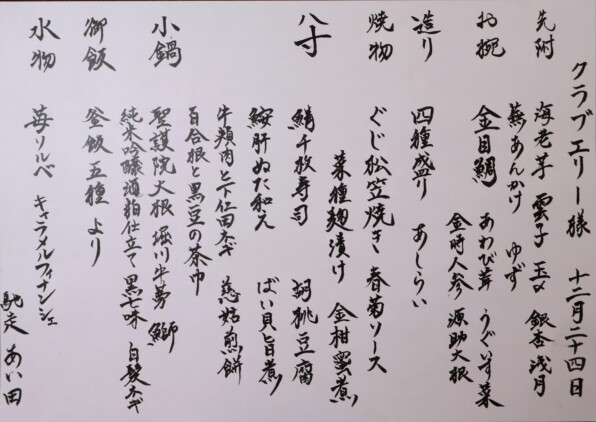 クラブエリー様 十二月二十四日
先附 海老芋 雲子 玉〆 銀杏 浅月
蕪あんかけ ゆず
お椀 金目鯛 あわび茸 うぐいす菜
金時人参 源助大根
造り 四種盛り あしらい
焼物 ぐじ松笠焼き 春菊ソース
菜種麹漬け 金柑蜜煮
八寸 鯖千枚寿司 胡桃豆腐
鮟肝ぬた和え ばい貝旨煮
牛頬肉と下仁田ネギ 慈姑煎餅
百合根と黒豆の茶巾
小鍋 聖護院大根 堀川牛蒡 鰤
純米吟醸酒粕仕立て 黒七味 白髪ネギ
御飯 釜飯五種より
水物 苺ソルベ キャラメルフィナンシェ
馳走 あい田